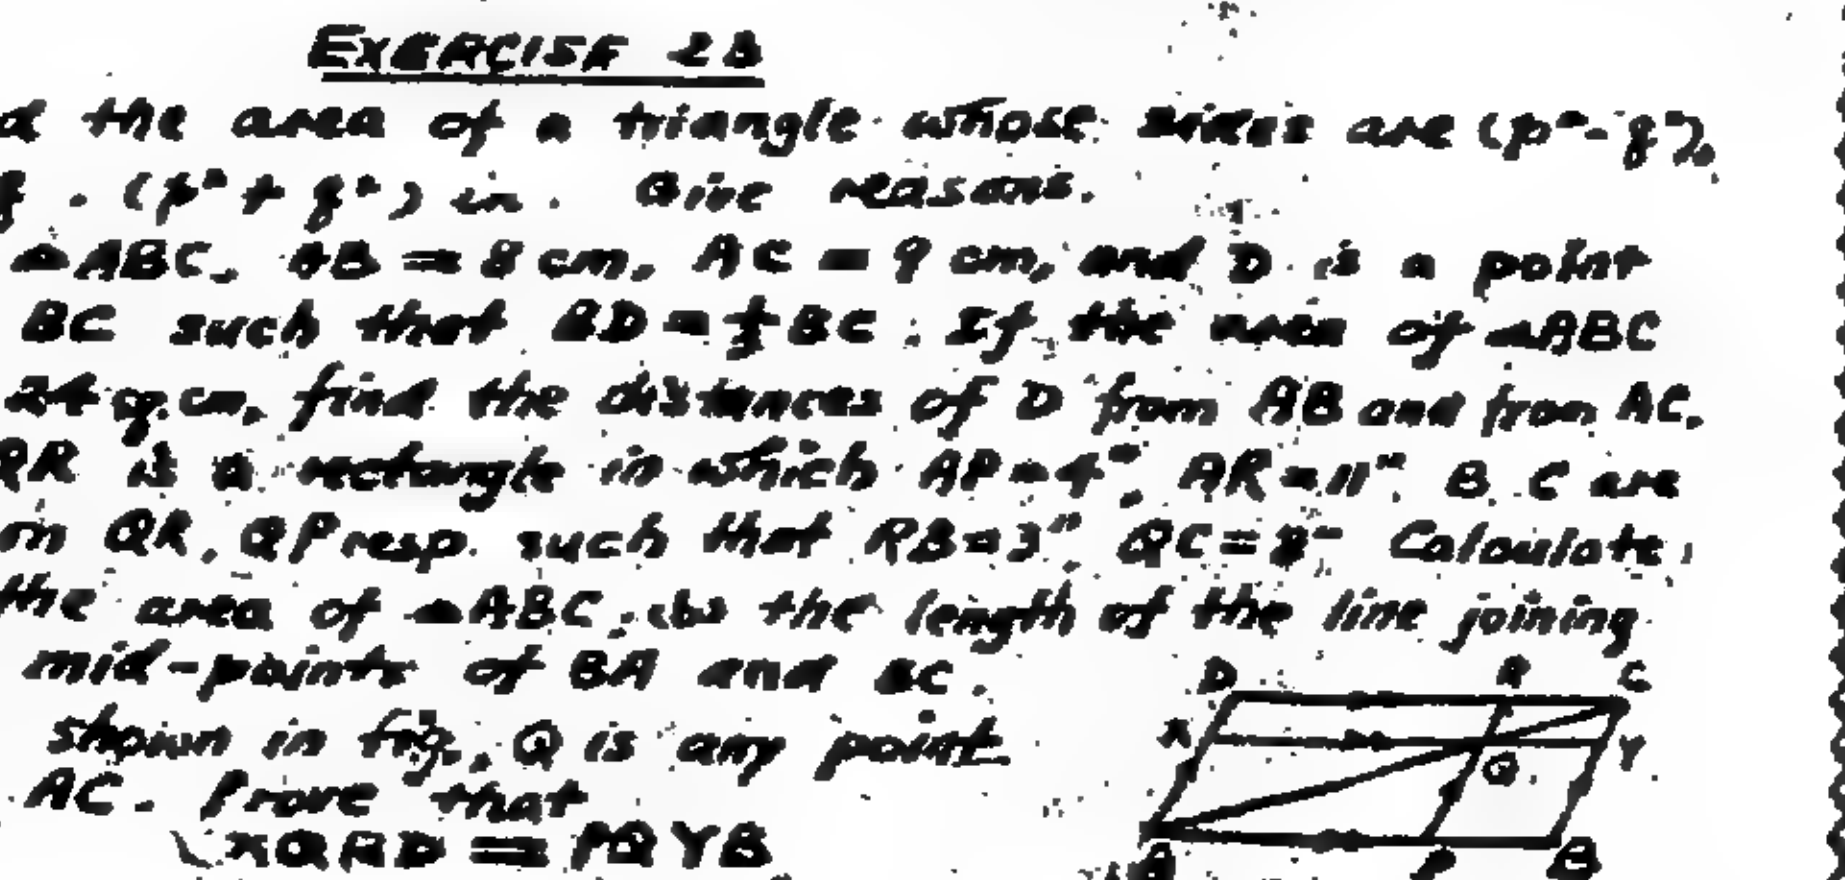 EXERCISE 2B
the area of a triangle whose sides are (p²-q²),
(p²+q²) in. Give reasons.
△ABC, AB = 8 cm, AC = 9 cm, and D is a point
BC such that BD = BC. If the area of △ABC
24 sq. cm, find the distances of D from AB and from AC.
QR is a rectangle in which AP = 4", AR = 11". B, C are
on QR, QP resp. such that RB = 3", QC = 8" Calculate
the area of △ABC, (b) the length of the line joining
mid-points of BA and BC.
shown in fig., Q is any point
AC. Prove that
XQRD = PQYB
D R C
X Q Y
A P B